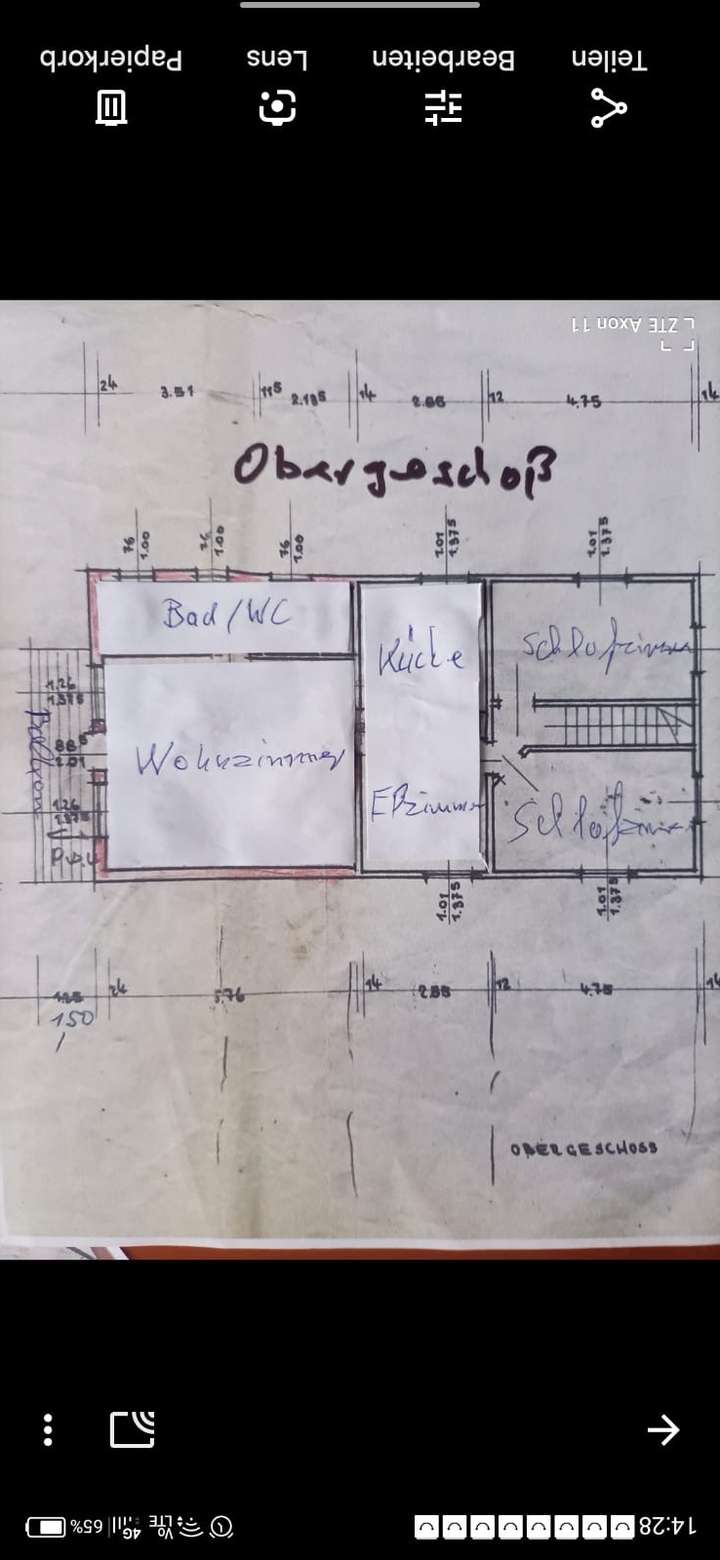 Papierkorb
Lens
Bearbeiten
Teilen
ZTE Axon 11
24
3.51
11⁵
2.13⁵
14
2.86
12
4.75
14
Obergeschoß
76
1.00
76
1.00
76
1.00
1.01
1.375
1.01
1.375
Bad/WC
Küche
Schlafzimmer
1.26
1.375
Balkon
88⁵
2.01
Wohnzimmer
1.26
1.375
Eßzimmer
Schlafzimmer
1.01
1.375
1.01
1.375
24
5.76
14
2.86
12
4.75
14
150
OBERGESCHOSS
14:28
VoLTE
4G
65%